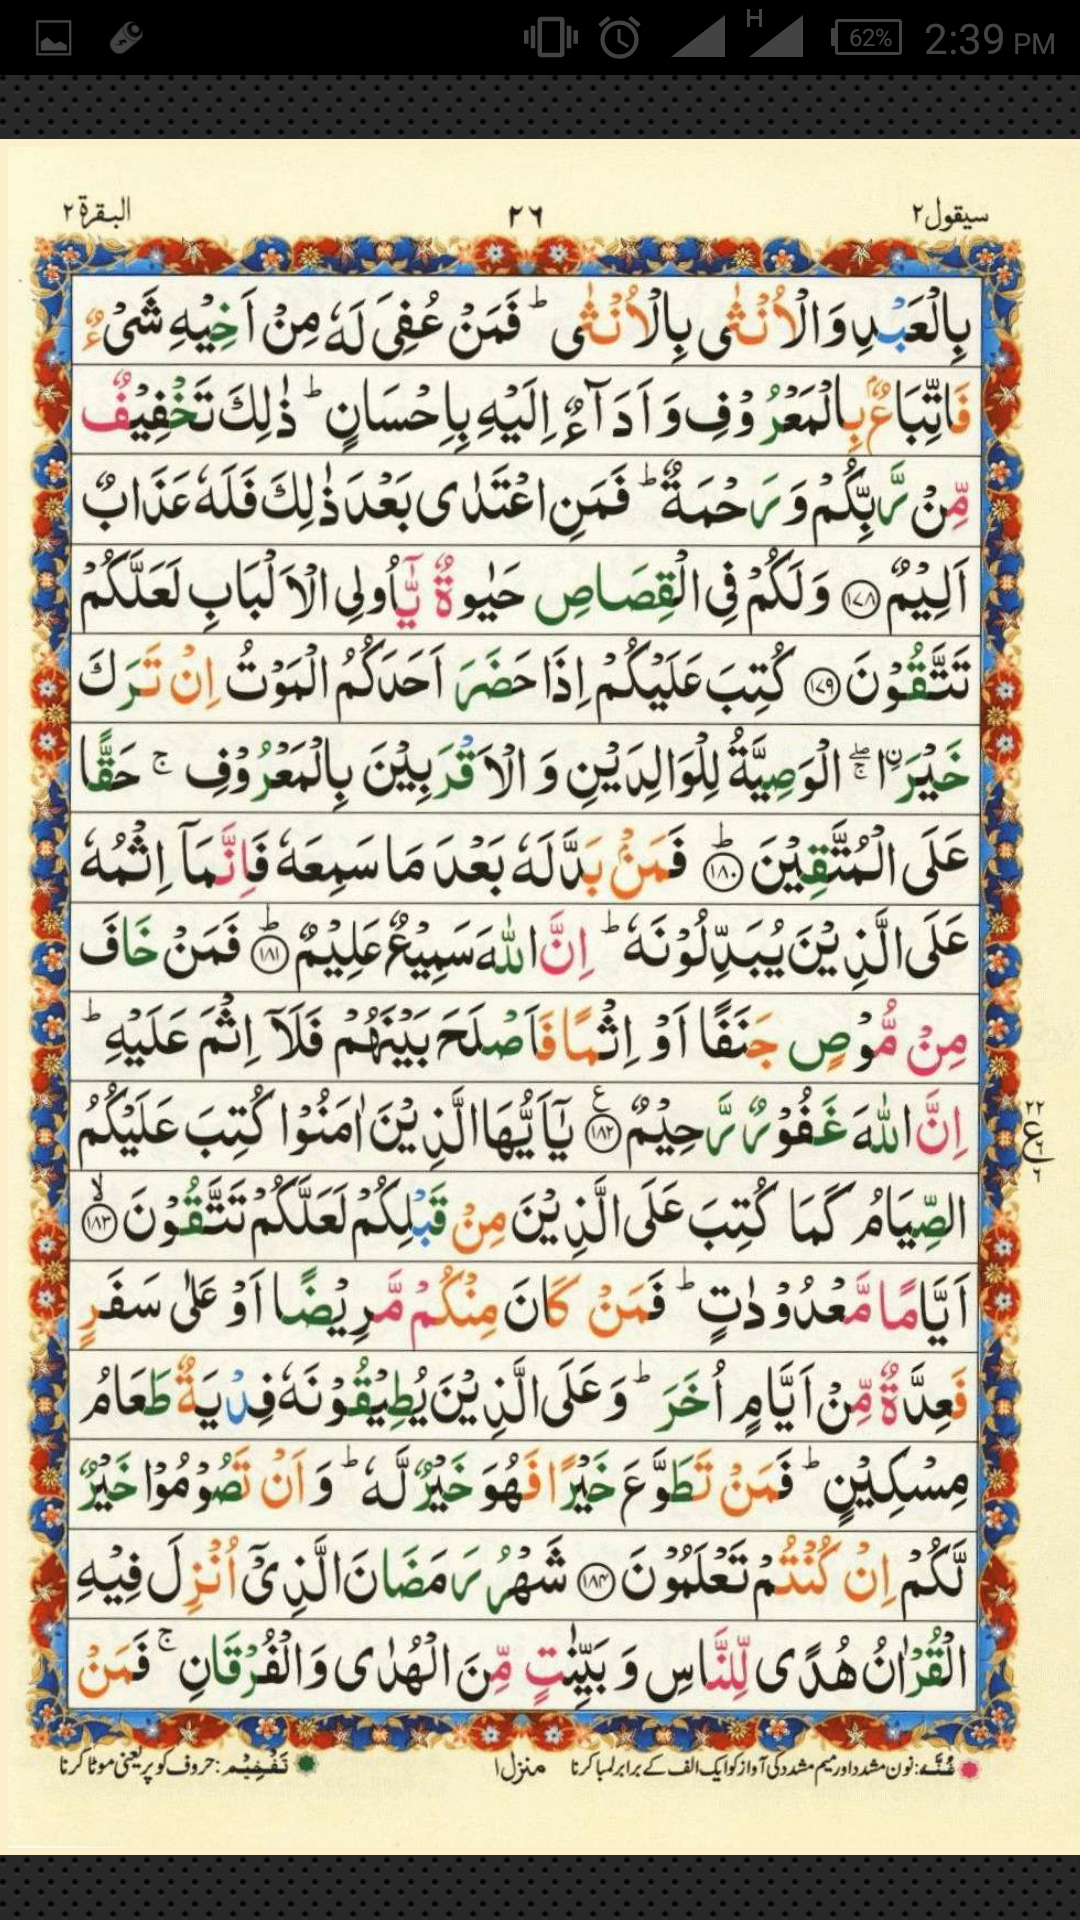 H 62% 2:39 PM
سيقول ٢ ٢٦ البقرة ٢
بِالْعَبْدِ وَالْاُنْثٰى بِالْاُنْثٰى ؕ فَمَنْ عُفِىَ لَهٗ مِنْ اَخِيْهِ شَىْءٌ
فَاتِّبَاعٌۢ بِالْمَعْرُوْفِ وَاَدَآءٌ اِلَيْهِ بِاِحْسَانٍ ؕ ذٰلِكَ تَخْفِيْفٌ
مِّنْ رَّبِّكُمْ وَرَحْمَةٌ ؕ فَمَنِ اعْتَدٰى بَعْدَ ذٰلِكَ فَلَهٗ عَذَابٌ
اَلِيْمٌ ﴿١٧٨﴾ وَلَكُمْ فِى الْقِصَاصِ حَيٰوةٌ يّٰٓاُولِى الْاَلْبَابِ لَعَلَّكُمْ
تَتَّقُوْنَ ﴿١٧٩﴾ كُتِبَ عَلَيْكُمْ اِذَا حَضَرَ اَحَدَكُمُ الْمَوْتُ اِنْ تَرَكَ
خَيْرَا ۖۚ اۨلْوَصِيَّةُ لِلْوَالِدَيْنِ وَالْاَقْرَبِيْنَ بِالْمَعْرُوْفِ ۚ حَقًّا
عَلَى الْمُتَّقِيْنَ ؕ ﴿١٨٠﴾ فَمَنْۢ بَدَّلَهٗ بَعْدَ مَا سَمِعَهٗ فَاِنَّمَآ اِثْمُهٗ
عَلَى الَّذِيْنَ يُبَدِّلُوْنَهٗ ؕ اِنَّ اللّٰهَ سَمِيْعٌ عَلِيْمٌ ؕ ﴿١٨١﴾ فَمَنْ خَافَ
مِنْ مُّوْصٍ جَنَفًا اَوْ اِثْمًا فَاَصْلَحَ بَيْنَهُمْ فَلَآ اِثْمَ عَلَيْهِ ؕ
اِنَّ اللّٰهَ غَفُوْرٌ رَّحِيْمٌ ﴿١٨٢﴾ ع يٰٓاَيُّهَا الَّذِيْنَ اٰمَنُوْا كُتِبَ عَلَيْكُمُ
٢٢ ع ٦ ٦
الصِّيَامُ كَمَا كُتِبَ عَلَى الَّذِيْنَ مِنْ قَبْلِكُمْ لَعَلَّكُمْ تَتَّقُوْنَ ۙ ﴿١٨٣﴾
اَيَّامًا مَّعْدُوْدٰتٍ ؕ فَمَنْ كَانَ مِنْكُمْ مَّرِيْضًا اَوْ عَلٰى سَفَرٍ
فَعِدَّةٌ مِّنْ اَيَّامٍ اُخَرَ ؕ وَعَلَى الَّذِيْنَ يُطِيْقُوْنَهٗ فِدْيَةٌ طَعَامُ
مِسْكِيْنٍ ؕ فَمَنْ تَطَوَّعَ خَيْرًا فَهُوَ خَيْرٌ لَّهٗ ؕ وَاَنْ تَصُوْمُوْا خَيْرٌ
لَّكُمْ اِنْ كُنْتُمْ تَعْلَمُوْنَ ﴿١٨٤﴾ شَهْرُ رَمَضَانَ الَّذِىْٓ اُنْزِلَ فِيْهِ
الْقُرْاٰنُ هُدًى لِّلنَّاسِ وَبَيِّنٰتٍ مِّنَ الْهُدٰى وَالْفُرْقَانِ ۚ فَمَنْ
غُنَّہ: نون مشدد اور میم مشدد کی آواز کو ایک الف کے برابر لمبا کرنا منزل ١ تَفْخِیْم: حروف کو پر یعنی موٹا کرنا